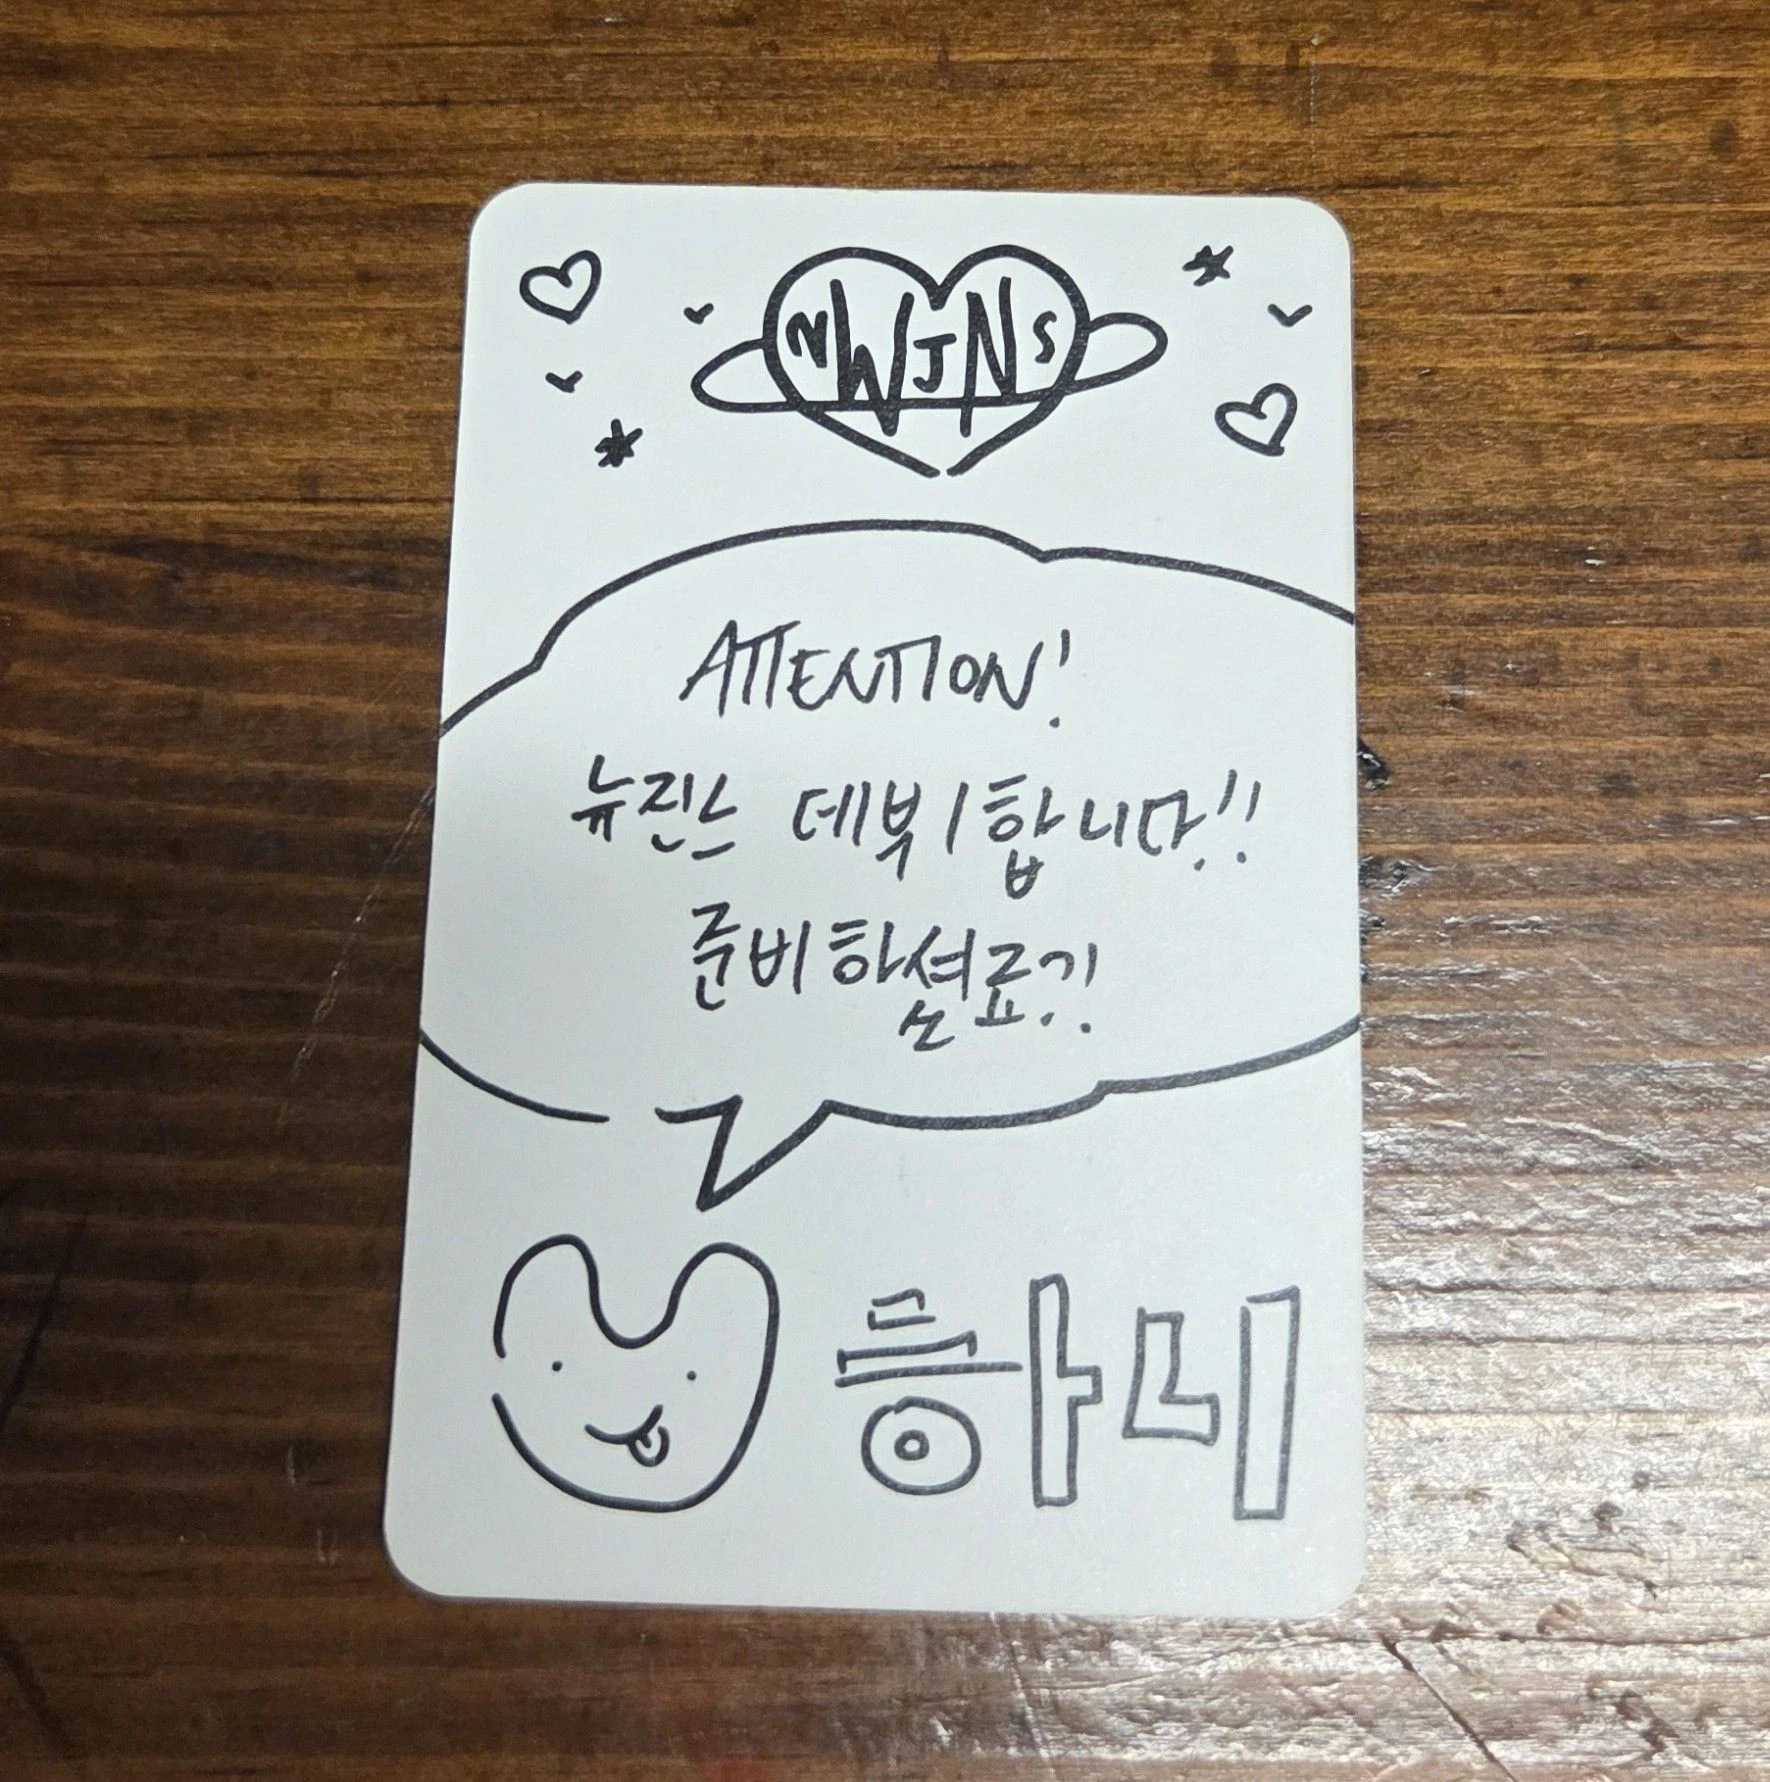 NWJNS
ATTENTION!
뉴진스 데뷔합니다!!
준비하셨료?!
하니